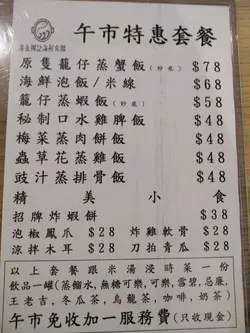 午市特惠套餐
原隻籠仔蒸蟹飯(炒底) $78
海鮮泡飯/米線 $68
籠仔蒸蝦飯(炒底) $58
秘制口水雞脾飯 $48
梅菜蒸肉餅飯 $48
蟲草花蒸雞飯 $48
豉汁蒸排骨飯 $48
精美小食
招牌炸蝦餅 $38
泡椒鳳爪 $28 炸雞軟骨 $28
涼拌木耳 $28 刀拍青瓜 $28
以上套餐跟米湯浸時菜一份
飲品一罐(蒸餾水,無糖可樂,可樂,雪碧,忌廉,
王老吉,冬瓜茶,烏龍茶,咖啡,奶茶)
午市免收加一服務費(只收現金)